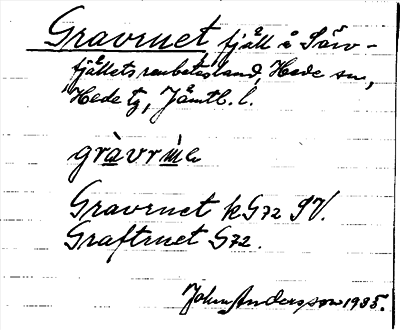 Gravruet fjäll å Särv-
fjällets renbetesland, Hede sn,
Hede tg, Jämtl. l.
Gravruet k G72 SV.
Graftruet G72.
John Andersson 1935.